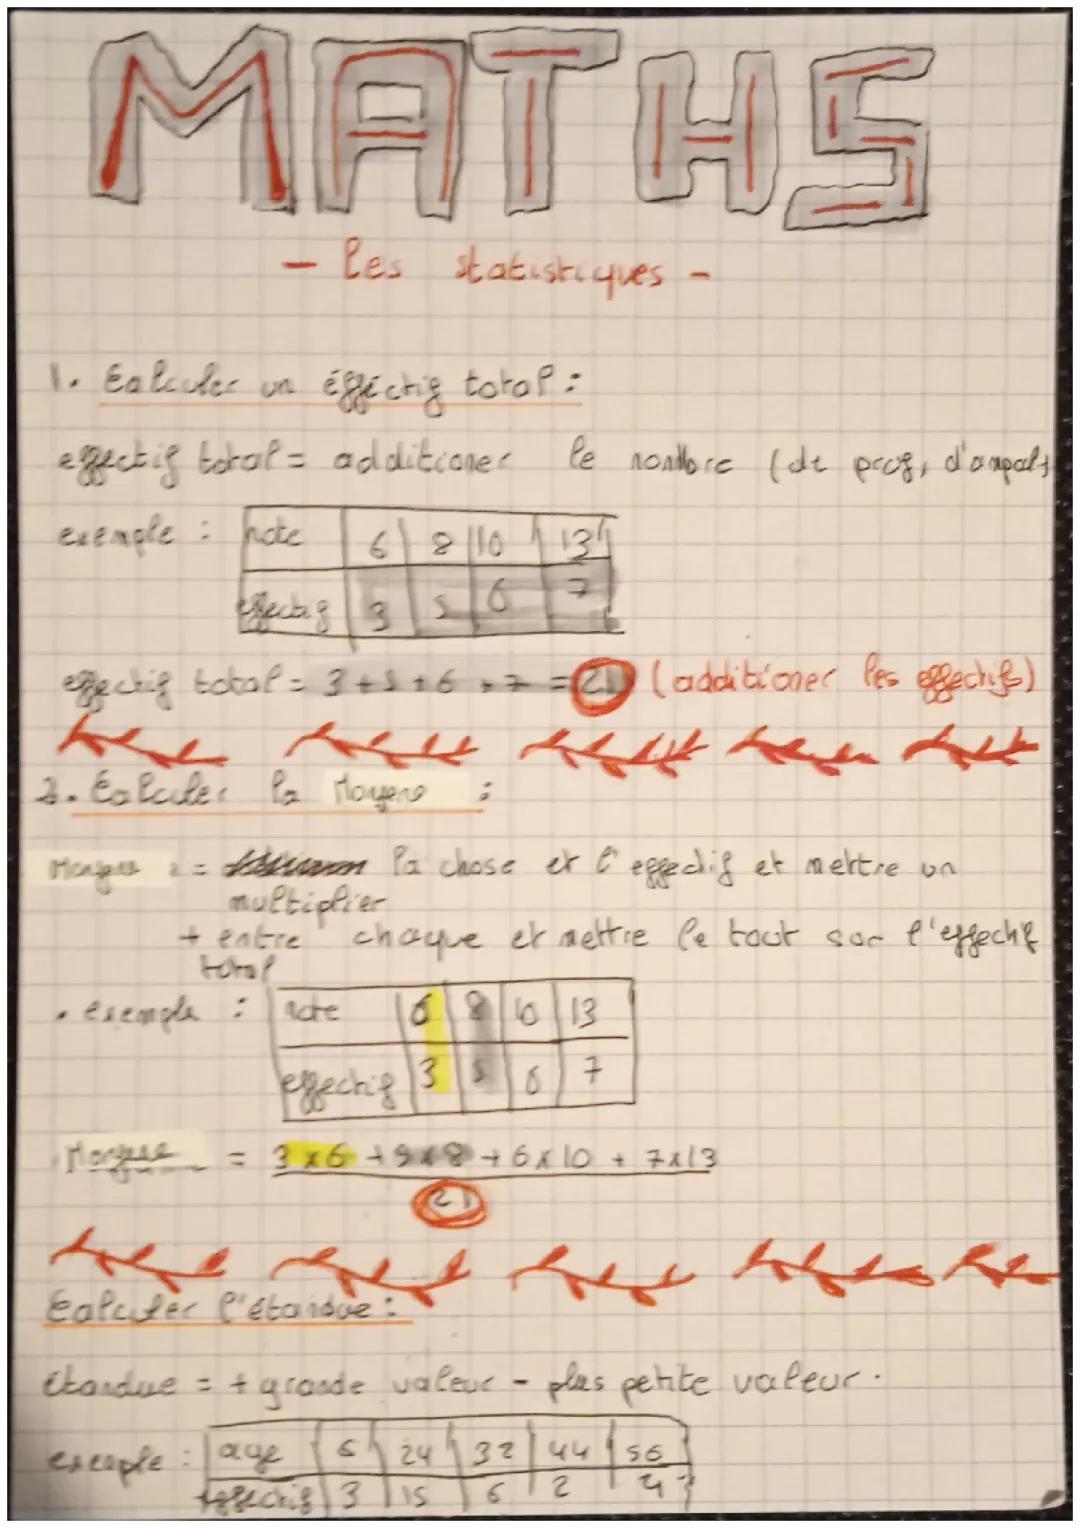 MATHS
- les statistiques -
1. Calculer un éfféctif total :
effectif total = additioner le nombre (de prof, d'appels
exemple : note 6 8 10 13
effectif 3 5 6 7
effectif total = 3+5+6+7 = 21 (additioner les effectifs)
2. Calculer la Moyene :
Moyene = la chose et l'effectif et mettre un
multiplier
+ entre chaque et mettre le tout sur l'effectif
total
• exemple : note 6 8 10 13
effectif 3 5 6 7
Moyene = 3x6 + 5x8 + 6x10 + 7x13
21
Calculer l'étandue :
étandue = + grande valeur - plus petite valeur.
exemple : age 6 24 32 44 56
effectif 3 15 6 2 4